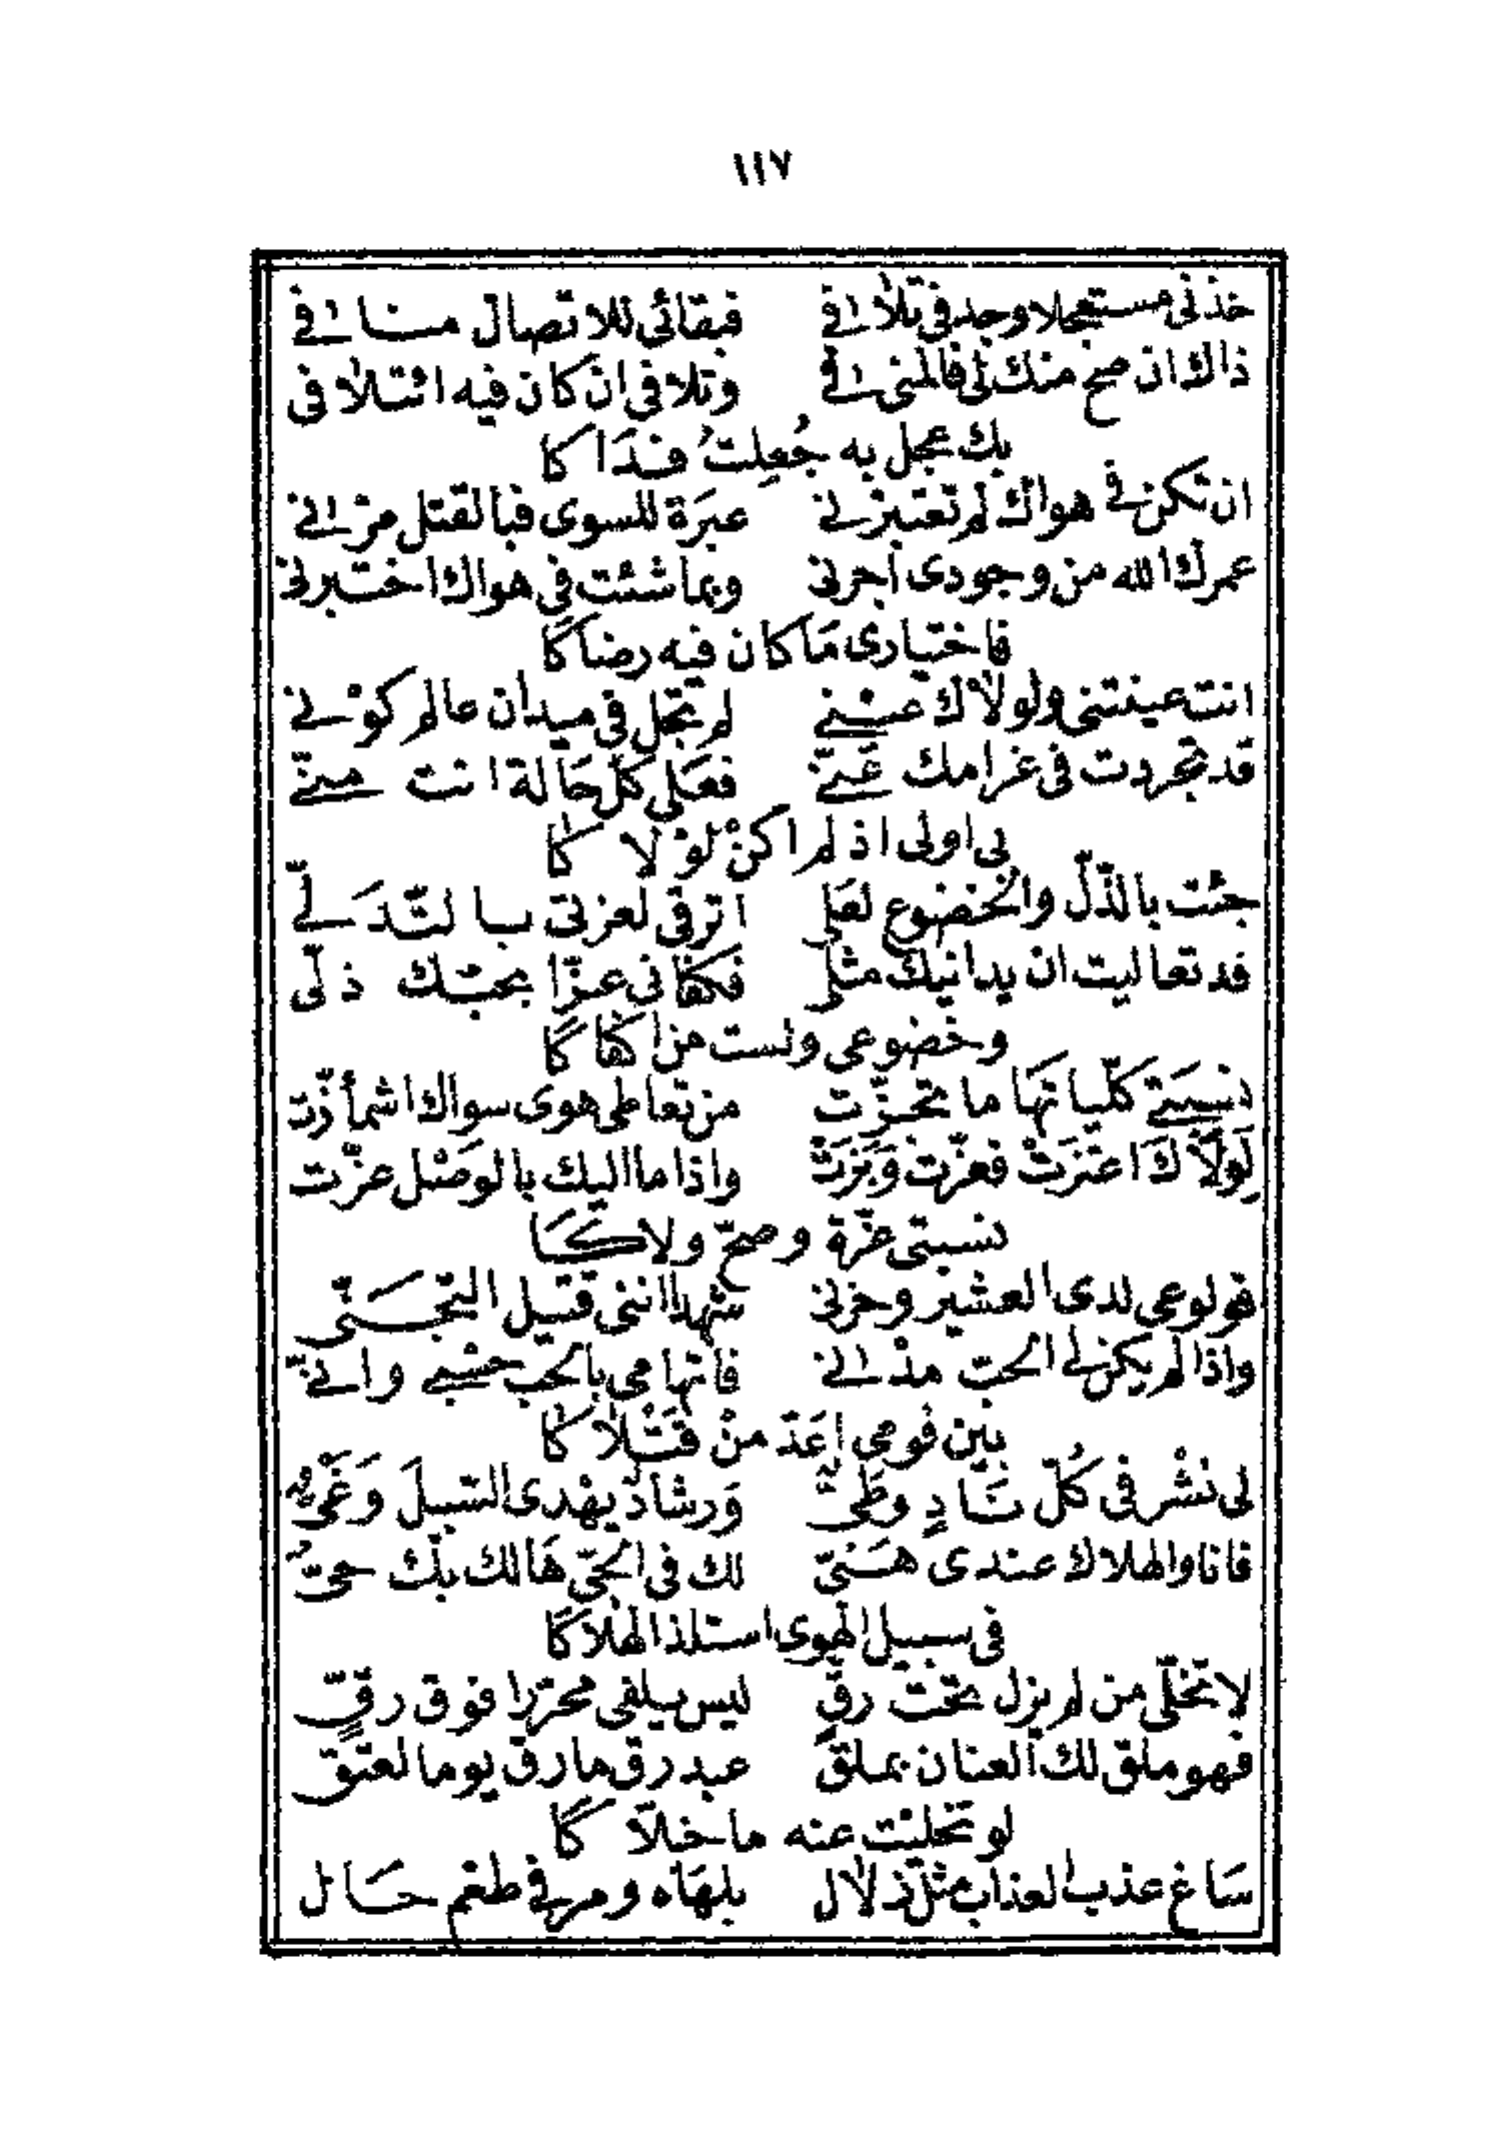 ١١٧
خذنى مستعجلا وجد فى تلافى فبقائى للاتصال منافى
ذاك ان صح منك لى فالمنى فى وتلافى ان كان فيه ائتلافى
بك عجل به جُعِلتُ فِدَاكا
ان تكن فى هواك لم تعتبرنى عبرَة للسوى فبالقتل مرْنى
عمرك الله من وجودى أجرنى وبما شئت فى هواك اختبرنى
فاختيارى مَا كان فيه رضاكا
انت عينتنى ولولاك عيْنى لم تجل فى ميدان عالم كوْنى
قد تجردت فى غرامك عَنّى فعَلى كلّ حَالة انت منّى
بى اولى اذ لم اكنْ لوْلاكا
جئت بالذّلّ والخضوع لعَلى اترقى لعزتى بالتّدَلّى
قد تعاليت ان يدانيك مثلى فكفانى عزّا بحبّك ذلّى
وخضوعى ولست من اكفاكا
نسبَتى كلّياتهَا ما تجزّت من تعاطى هوى سواك اشمأزّت
لَولاَكَ اعتزَتْ فعزّت وَبَزَتْ واذا ما اليك بالوصْل عزّت
نسبتى عزّة وصحّ ولاكَا
فولوعى لدى العشير وحزنى شهدا اننى قتيل التّجَنّى
واذا لم يكن لى الحبّ مدْنى فاتهامى بالحب حسْبى وانّى
بين قومى اعَدّ منْ قَتْلاَكا
لى نشْر فى كُلّ نَادٍ وطَىٌّ وَرشادٌ يهْدى السّبيلَ وَغَىٌّ
فانا والهلاك عندى هَنىّ لك فى الحّى هَالك بك حىٌّ
فى سبيل الهوى استلذ الهلاكا
لا تخلّى من لم يزل تحت رقٍّ ليس يلفى محرّرا فوق رقٍّ
فهو ملق لك العنان بملق عبد رق مارق يوما لعتق
لو تخليْت عنه ما خلاّكا
سَاغ عذب العذاب مثل زلال بلهَاه ومر فى طعم حَال